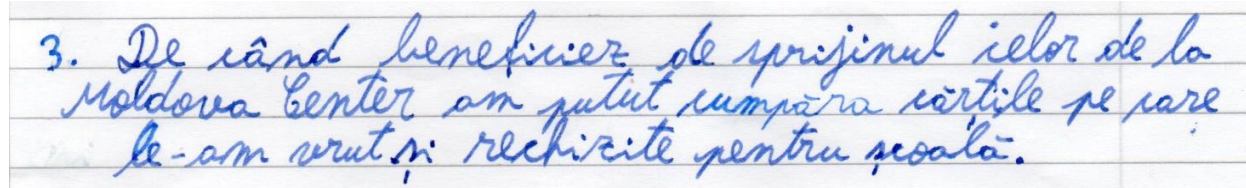 3. De când beneficiez de sprijinul celor de la
Moldova Center am putut cumpăra cărțile pe care
le-am vrut și rechizite pentru școală.